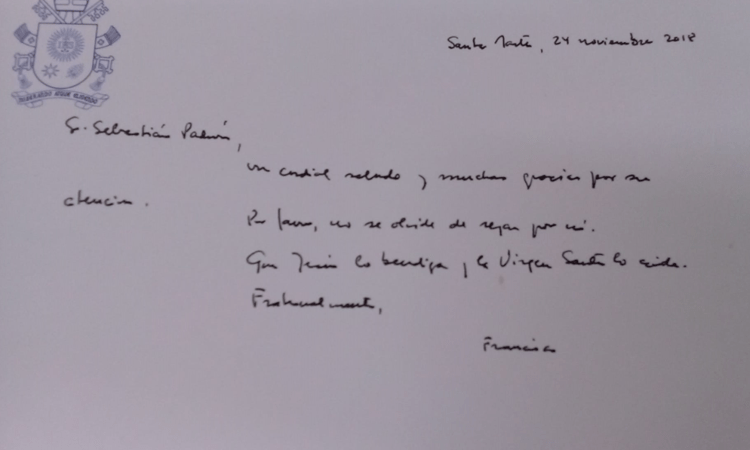 MISERANDO ATQUE ELIGENDO
Santa Marta, 24 noviembre 2018
Sr. Sebastián
un cordial saludo y muchas gracias por su
atención.
Por favor, no se olvide de rezar por mí.
Que Jesús lo bendiga y la Virgen Santa lo cuide.
Fraternalmente,
Francisco